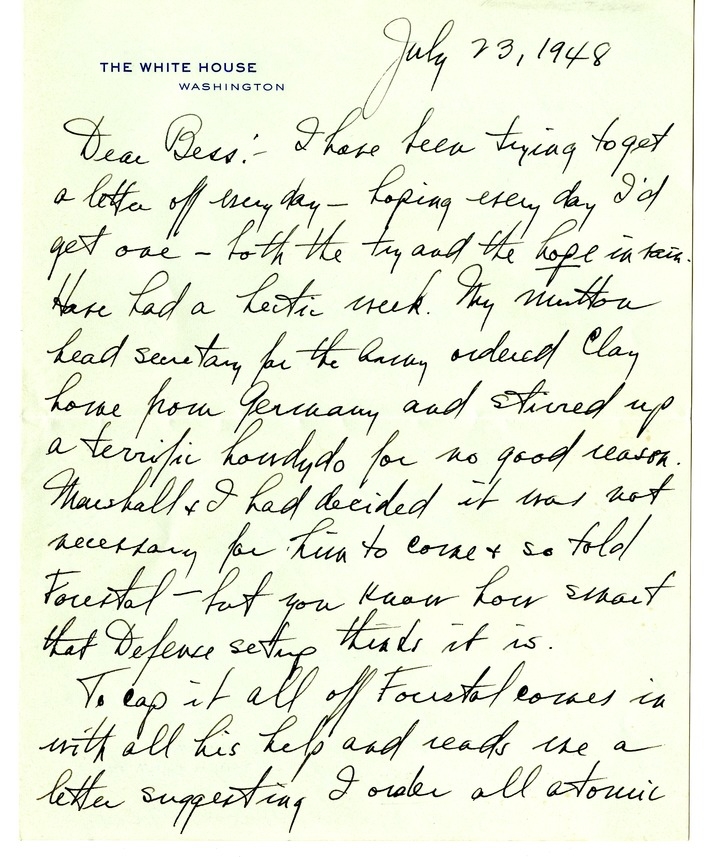 July 23, 1948
THE WHITE HOUSE
WASHINGTON
Dear Bess:- I have been trying to get
a letter off every day - hoping every day I'd
get one - both the try and the hope in vain.
Have had a hectic week. My mutton
head secretary for the Army ordered Clay
home from Germany and stirred up
a terrific howdydo for no good reason.
Marshall & I had decided it was not
necessary for him to come & so told
Forestal - but you know how smart
that Defense setup thinks it is.
To cap it all off Forestal comes in
with all his help and reads me a
letter suggesting I order all atomic